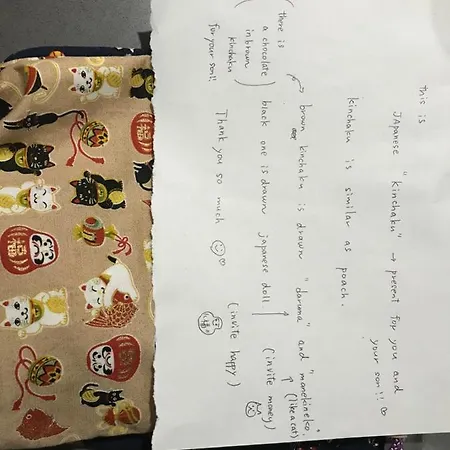 this is
Japanese "kinchaku" → present for you and
your son!! ♡
kinchaku is similar as poach.
brown kinchaku is drawn "daruma" and "manekineko".
(like a cat)
(invite money)
black one is drawn japanese doll
(invite happy)
(there is
a chocolate
in brown
kinchaku
for your son!!)
Thank you so much ☺♡
福
福
福